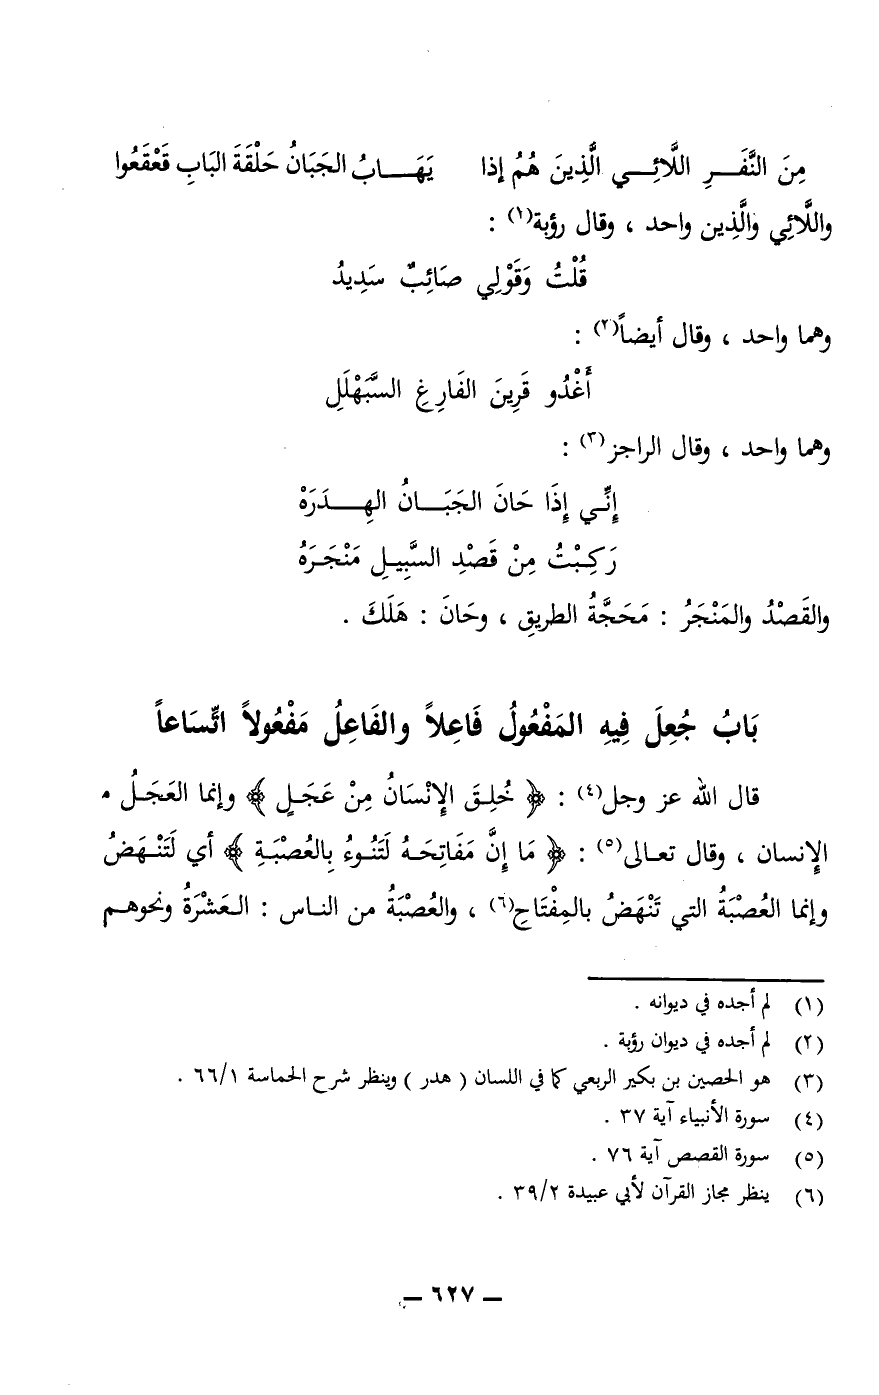 مِنَ النَّفَـــرِ اللَّائِـــي الَّذِينَ هُمُ إذا يَهَـــابُ الجَبَانُ حَلْقَةَ البَابِ قَعْقَعُوا
واللَّائِي والَّذِين واحد ، وقال رؤبة(١) :
قُلْتُ وَقَوْلِي صَائِبٌ سَدِيدُ
وهما واحد ، وقال أيضاً(٢) :
أَغْدُو قَرِينَ الفَارِغِ السَّبَهْلَلِ
وهما واحد ، وقال الراجز(٣) :
إِنِّـي إِذَا حَانَ الجَبَـــانُ الهِـــدَرَهْ
رَكِـبْتُ مِنْ قَصْدِ السَّبِيـلِ مَنْجَـرَهُ
والقَصْدُ والمَنْجَرُ : مَحَجَّةُ الطريقِ ، وحَانَ : هَلَكَ .
بَابُ جُعِلَ فِيهِ المَفْعُولُ فَاعِلاً والفَاعِلُ مَفْعُولاً اتِّسَاعاً
قال الله عز وجل(٤) : ﴿ خُلِقَ الإِنْسَانُ مِنْ عَجَلٍ ﴾ وإنما العَجَلُ م
الإنسان ، وقال تعـالى(٥) : ﴿ مَا إِنَّ مَفَاتِحَـهُ لَتَنُوءُ بِالعُصْبَـةِ ﴾ أي لَتَنْـهَضُ
وإنما العُصْبَةُ التي تَنْهَضُ بالمِفْتَاحِ(٦) ، والعُصْبَةُ من النـاس : العَشْرَةُ ونحوهـم
(١) لم أجده في ديوانه .
(٢) لم أجده في ديوان رؤبة .
(٣) هو الحصين بن بكير الربعي كما في اللسان ( هدر ) وينظر شرح الحماسة ٦٦/١ .
(٤) سورة الأنبياء آية ٣٧ .
(٥) سورة القصص آية ٧٦ .
(٦) ينظر مجاز القرآن لأبي عبيدة ٣٩/٢ .
ـ ٦٢٧ ـ